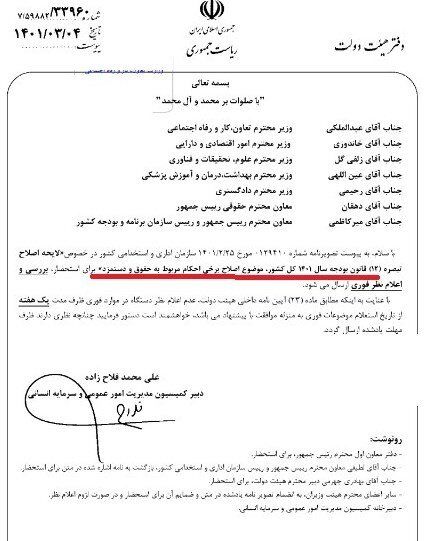 شماره ۷/۵۹۸۸۲/۳۳۹۶۰
تاریخ ۱۴۰۱/۰۳/۰۴
پیوست:
جمهوری اسلامی ایران
ریاست جمهوری
دفتر هیئت دولت
بسمه تعالی
"با صلوات بر محمد و آل محمد"
جناب آقای عبدالملکی وزیر محترم تعاون، کار و رفاه اجتماعی
جناب آقای خاندوزی وزیر محترم امور اقتصادی و دارایی
جناب آقای زلفی گل وزیر محترم علوم، تحقیقات و فناوری
جناب آقای عین اللهی وزیر محترم بهداشت، درمان و آموزش پزشکی
جناب آقای رحیمی وزیر محترم دادگستری
جناب آقای دهقان معاون محترم حقوقی رییس جمهور
جناب آقای میرکاظمی معاون محترم رییس جمهور و رییس سازمان برنامه و بودجه کشور
با سلام، به پیوست تصویرنامه شماره ۰۱۲۹۴۱۰ مورخ ۱۴۰۱/۲/۲۵ سازمان اداری و استخدامی کشور در خصوص «لایحه اصلاح
تبصره (۱۲) قانون بودجه سال ۱۴۰۱ کل کشور، موضوع اصلاح برخی احکام مربوط به حقوق و دستمزد» برای استحضار، بررسی و
اعلام نظر فوری ارسال می شود.
با عنایت به اینکه مطابق ماده (۲۳) آیین نامه داخلی هیئت دولت، عدم اعلام نظر دستگاه در موارد فوری ظرف مدت یک هفته
از تاریخ استعلام موضوعات فوری به منزله موافقت با پیشنهاد می باشد، خواهشمند است دستور فرمایید چنانچه نظری دارند ظرف
مهلت یادشده ارسال گردد.
علی محمد فلاح زاده
دبیر کمیسیون مدیریت امور عمومی و سرمایه انسانی
رونوشت:
- دفتر معاون اول محترم رئیس جمهور، برای استحضار.
- جناب آقای لطیفی معاون محترم رییس جمهور و رییس سازمان اداری و استخدامی کشور، بازگشت به نامه اشاره شده در متن برای استحضار.
- جناب آقای بهادری جهرمی دبیر محترم هیئت دولت، برای استحضار.
- سایر اعضای محترم هیئت وزیران، به انضمام تصویر نامه یادشده در متن و ضمایم آن برای استحضار و در صورت لزوم اعلام نظر.
- دبیرخانه کمیسیون مدیریت امور عمومی و سرمایه انسانی.